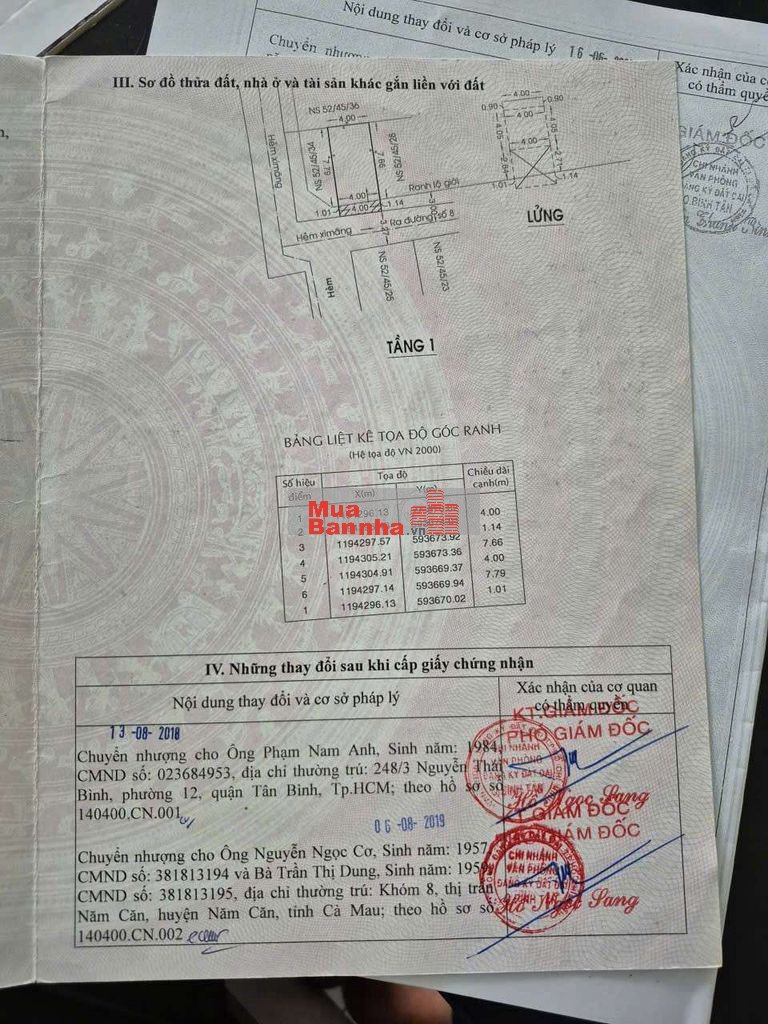 Nội dung thay đổi và cơ sở pháp lý
16-06-201
Chuyển nhượng
Xác nhận của cơ
có thẩm quyền
GIÁM ĐỐC
CHI NHÁNH
VĂN PHÒNG
ĐĂNG KÝ ĐẤT ĐAI
Q.BÌNH TÂN
III. Sơ đồ thửa đất, nhà ở và tài sản khác gắn liền với đất
NS 52/45/36
4.00
Hẻm ximăng
NS 52/45/34
7.79
7.66
NS 52/45/28
4.00
1.01
4.00
1.14
Ranh lộ giới
Hẻm ximăng
Ra đường số 8
Hẻm
NS 52/45/25
NS 52/45/23
TẦNG 1
4.00
0.90
0.90
4.00
4.05
4.05
4.00
1.01
1.14
LỬNG
BẢNG LIỆT KÊ TỌA ĐỘ GÓC RANH
(Hệ tọa độ VN 2000)
Số hiệu điểm Tọa độ Chiều dài cạnh(m)
X(m) Y(m)
1 4.00
2 1.14
3 1194297.57 593673.92 7.66
4 1194305.21 593673.36 4.00
5 1194304.91 593669.37 7.79
6 1194297.14 593669.94 1.01
1 1194296.13 593670.02
Mua
Bannha.vn
IV. Những thay đổi sau khi cấp giấy chứng nhận
Nội dung thay đổi và cơ sở pháp lý
Xác nhận của cơ quan
có thẩm quyền
13-08-2018
Chuyển nhượng cho Ông Phạm Nam Anh, Sinh năm: 1984,
CMND số: 023684953, địa chỉ thường trú: 248/3 Nguyễn Thái
Bình, phường 12, quận Tân Bình, Tp.HCM; theo hồ sơ số
140400.CN.001
KT.GIÁM ĐỐC
PHÓ GIÁM ĐỐC
CHI NHÁNH
VĂN PHÒNG
ĐĂNG KÝ ĐẤT ĐAI
Q.BÌNH TÂN
Hồ Ngọc Sang
06-08-2019
Chuyển nhượng cho Ông Nguyễn Ngọc Cơ, Sinh năm: 1957,
CMND số: 381813194 và Bà Trần Thị Dung, Sinh năm: 1959,
CMND số: 381813195, địa chỉ thường trú: Khóm 8, thị trấn
Năm Căn, huyện Năm Căn, tỉnh Cà Mau; theo hồ sơ số
140400.CN.002
KT.GIÁM ĐỐC
PHÓ GIÁM ĐỐC
CHI NHÁNH
VĂN PHÒNG
ĐĂNG KÝ ĐẤT ĐAI
Q.BÌNH TÂN
Hồ Ngọc Sang